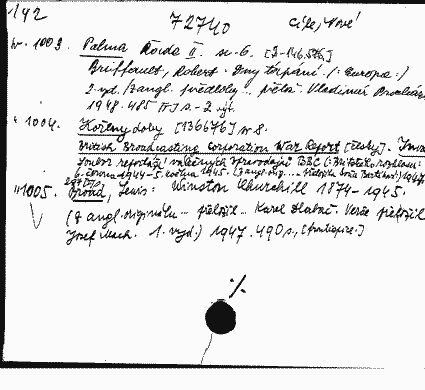 142 72740 
č. 1003. Palma Řada II. sv. 6. [D-146.576]
Briffault, Robert: Dny trápení. (: Europa :)
2. vyd. /Z angl. předlohy... přel. Vladimír
1948. 485 [I] s. - 2 výt.
" 1004. Kořeny doby [136676] sv 8.
British Broadcasting Corporation War Report [česky].
Soubor reportáží válečných zpravodajů BBC
6. června 1944 - 5. května 1945. 1947.
" 1005. Broad, Lewis: Winston Churchill 1874-1945.
(Z angl. originálu... přeložil... Karel Verše přeložil
Josef Mach. 1. vyd.) 1947. 490 s., [frontispice.]
·/.